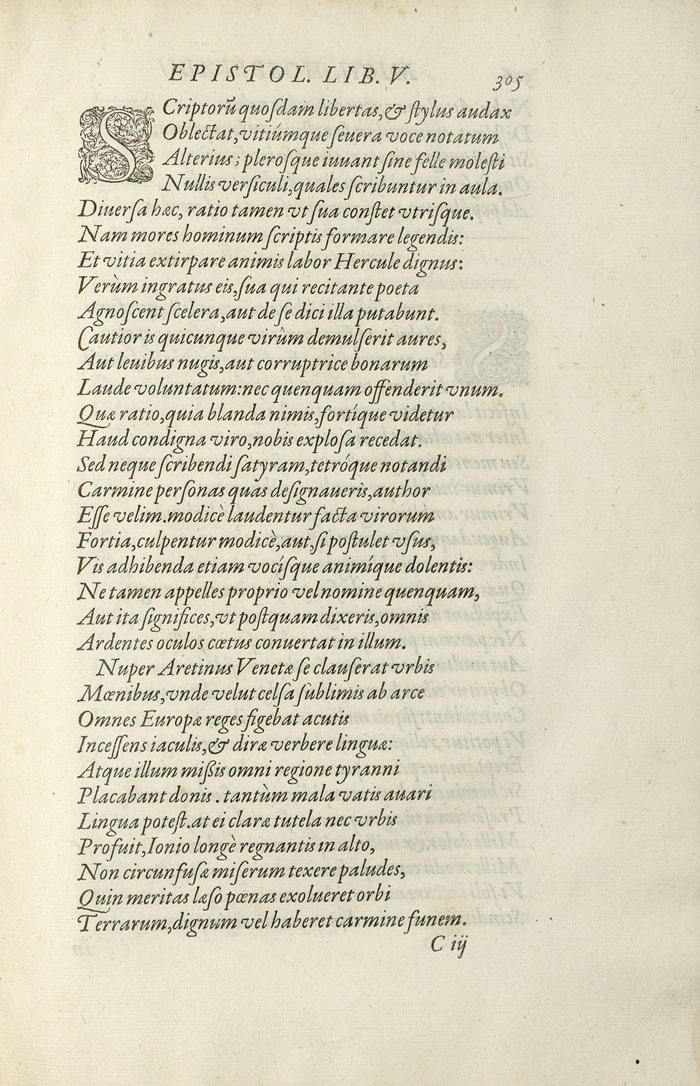 EPISTOL. LIB. V. 305
SCriptorũ quosdam libertas, & stylus audax
Oblectat, vitiúmque seuera voce notatum
Alterius; plerosque iuuant sine felle molesti
Nullis versiculi, quales scribuntur in aula.
Diuersa hæc, ratio tamen vt sua constet vtrisque.
Nam mores hominum scriptis formare legendis:
Et vitia extirpare animis labor Hercule dignus:
Verùm ingratus eis, sua qui recitante poeta
Agnoscent scelera, aut de se dici illa putabunt.
Cautior is quicunque virûm demulserit aures,
Aut leuibus nugis, aut corruptrice bonarum
Laude voluntatum: nec quenquam offenderit vnum.
Quæ ratio, quia blanda nimis, fortíque videtur
Haud condigna viro, nobis explosa recedat.
Sed neque scribendi satyram, tetróque notandi
Carmine personas quas designaueris, author
Esse velim. modicè laudentur facta virorum
Fortia, culpentur modicè, aut, si postulet vsus,
Vis adhibenda etiam vocísque animíque dolentis:
Ne tamen appelles proprio vel nomine quenquam,
Aut ita significes, vt postquam dixeris, omnis
Ardentes oculos cœtus conuertat in illum.
Nuper Aretinus Venetæ se clauserat vrbis
Mœnibus, vnde velut celsa sublimis ab arce
Omnes Europæ reges figebat acutis
Incessens iaculis, & diræ verbere linguæ:
Atque illum missis omni regione tyranni
Placabant donis. tantùm mala vatis auari
Lingua potest. at ei claræ tutela nec vrbis
Profuit, Ionio longè regnantis in alto,
Non circunfusæ miserum texere paludes,
Quin meritas læso pœnas exolueret orbi
Terrarum, dignum vel haberet carmine funem.
C iij